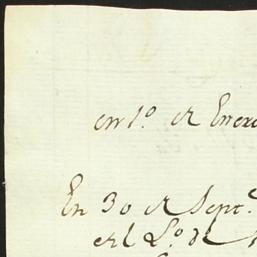 en 1.º de Enero
En 30 de Sept.e
el L.º de